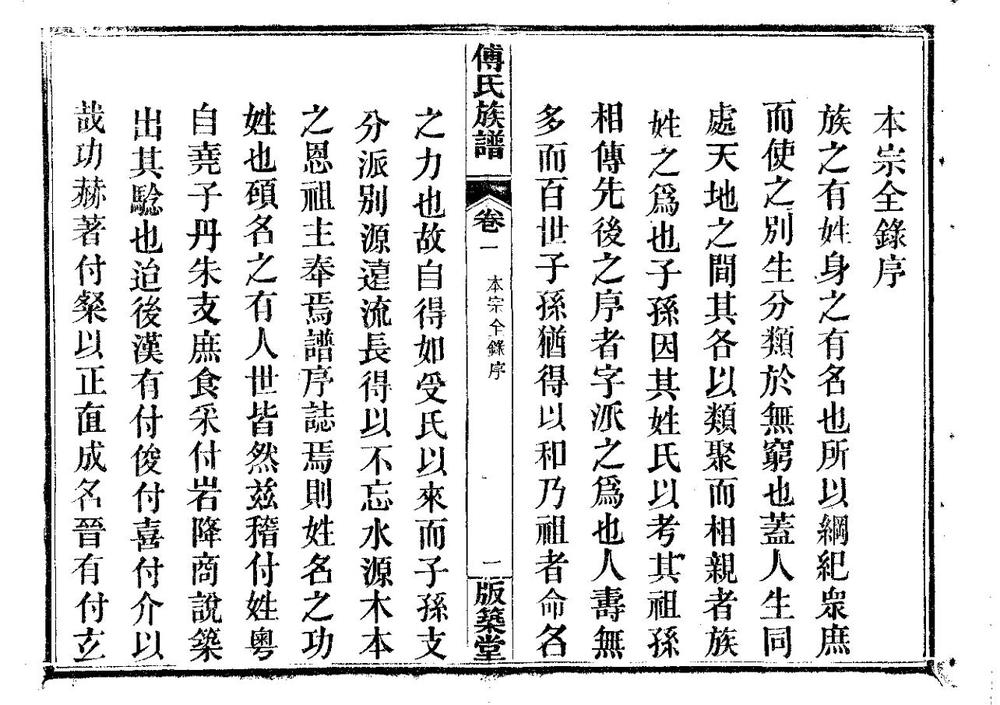 本宗全錄序
族之有姓身之有名也所以綱紀衆庶
而使之別生分類於無窮也蓋人生同
處天地之間其各以類聚而相親者族
姓之爲也子孫因其姓氏以考其祖孫
相傳先後之序者字派之爲也人壽無
多而百世子孫猶得以和乃祖者命名
傅氏族譜
卷一
本宗全錄序
一
版築堂
之力也故自得如受氏以來而子孫支
分派别源遠流長得以不忘水源木本
之恩祖主奉焉譜序誌焉則姓名之功
姓也碩名之有人世皆然兹稽付姓粵
自堯子丹朱支庶食采付岩降商說築
出其騐也迨後漢有付俊付喜付介以
哉功赫著付燮以正直成名晉有付玄